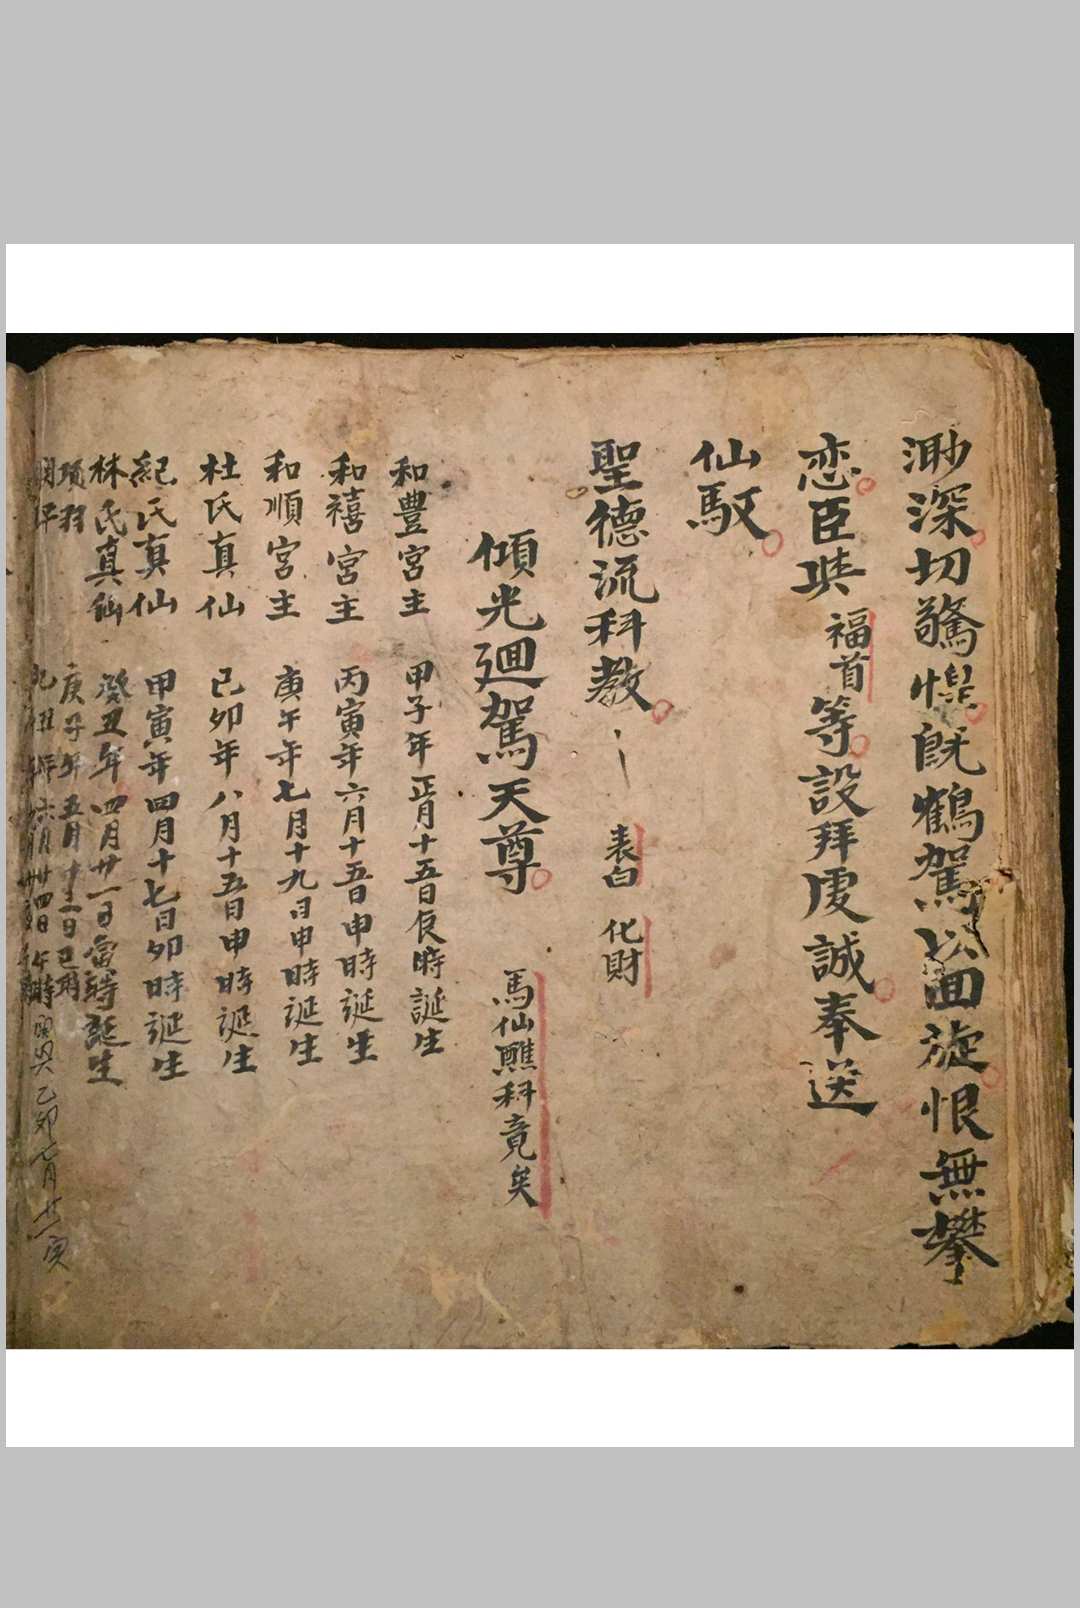 渺深切驚惶既鶴駕以囬旋恨無攀
恋臣㳟福首等設拜虔誠奉送
仙馭
聖德流科教 表白 化財
傾光廻駕天尊 馬仙醮科竟矣
和豊宮主 甲子年正月十五日辰時誕生
和禧宮主 丙寅年六月十五日申時誕生
和順宮主 庚午年七月十九日申時誕生
杜氏真仙 己卯年八月十五日申時誕生
紀氏真仙 甲寅年四月十七日卯時誕生
林氏真仙 癸丑年四月廿一日寅時誕生
庚子年五月十二日巳時
年六月廿四日午時
乙卯七月廿一寅